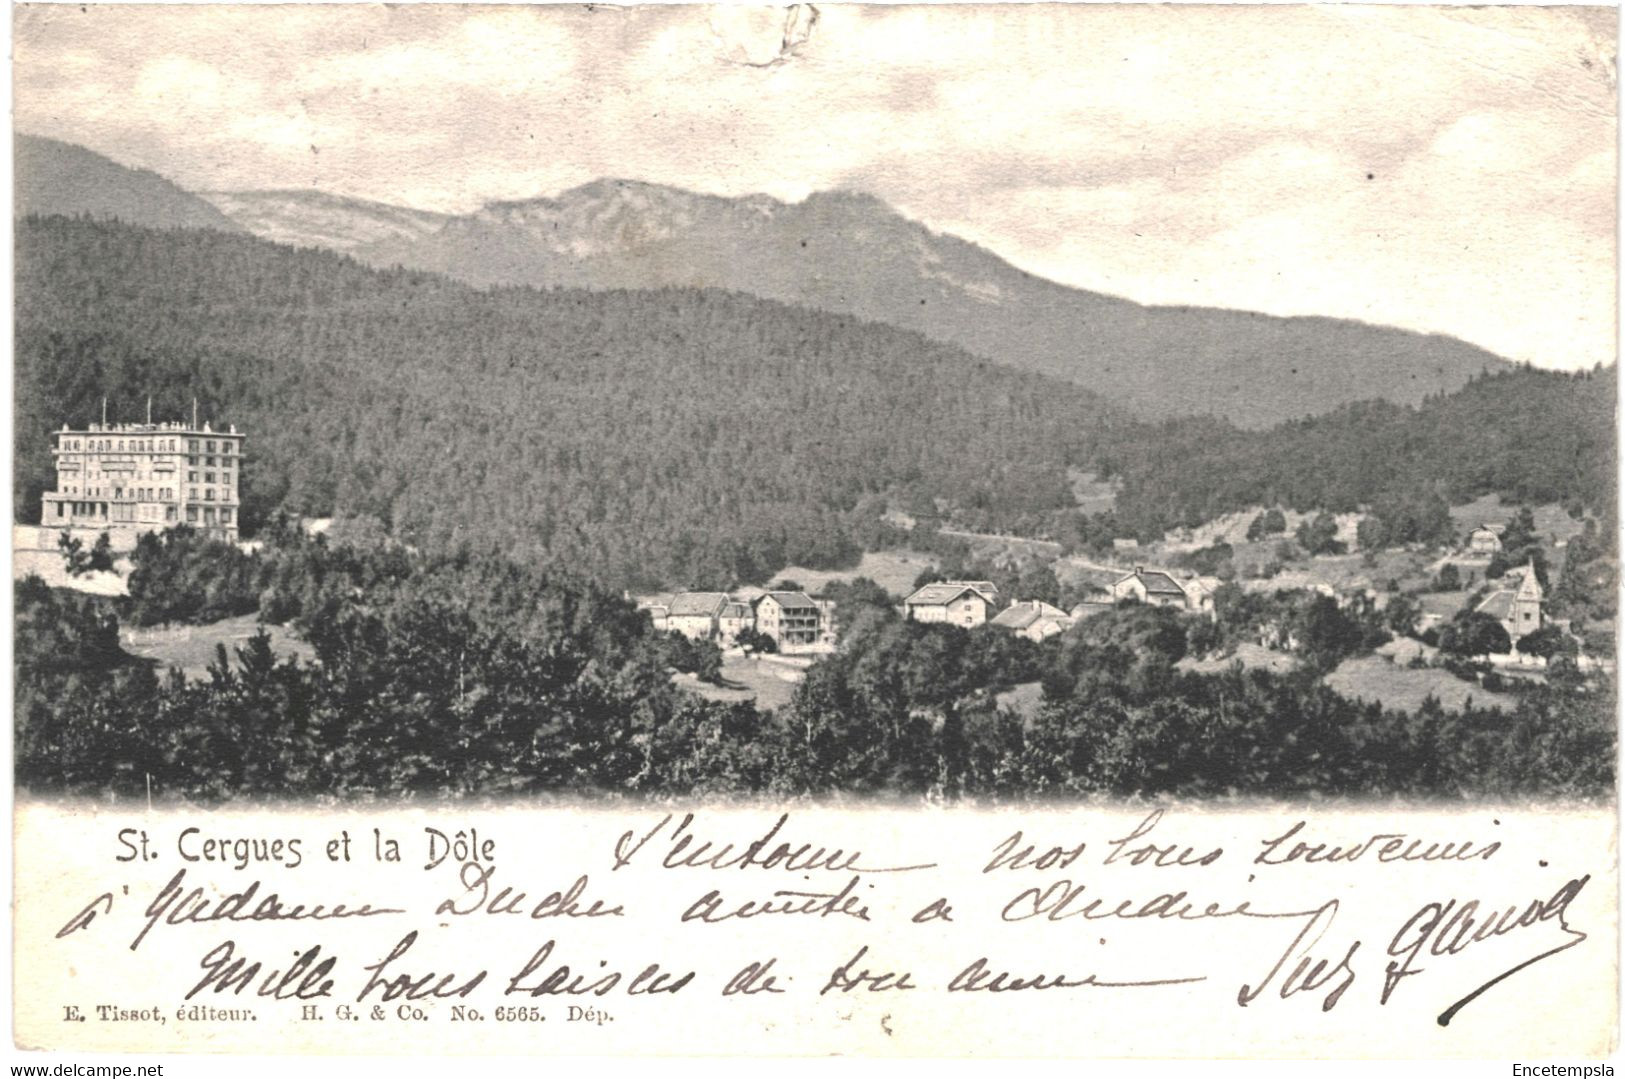 St. Cergues et la Dôle nos bons souvenirs.
à Madame Ducher amitiés a Andrée
Mille bons baisers de ton amie
E. Tissot, éditeur. H. G. & Co. No. 6565. Dép.
www.delcampe.net Encetempsla